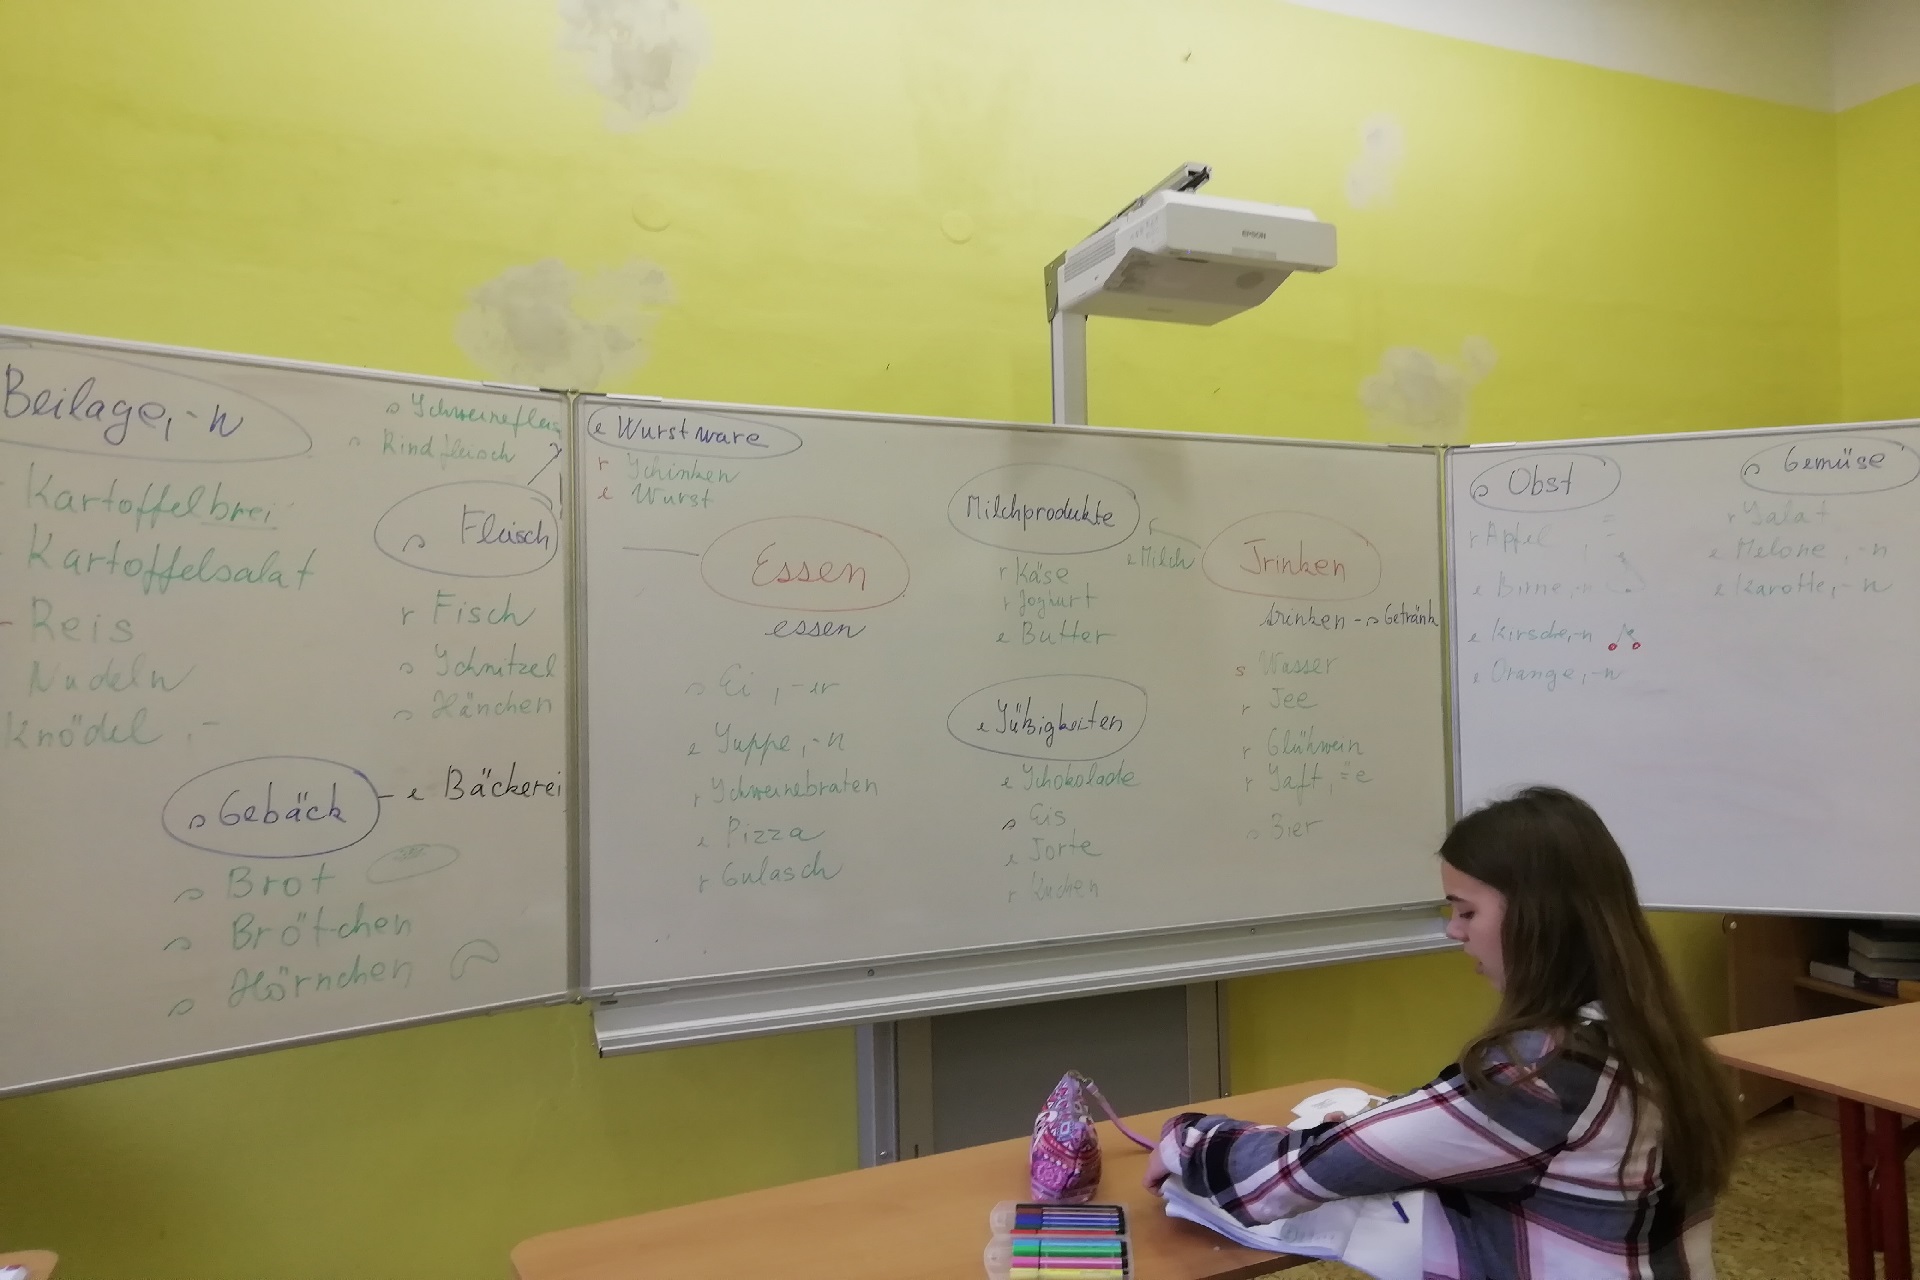 EPSON
Beilage, -n
Kartoffelbrei
Kartoffelsalat
- Reis
Nudeln
Knödel, -
s Schweinefleis
s Rindfleisch
s Fleisch
r Fisch
s Schnitzel
s Hänchen
s Gebäck - e Bäckerei
s Brot
s Brötchen
s Hörnchen
e Wurstware
r Schinken
e Wurst
Essen
essen
s Ei, -er
e Suppe, -n
r Schweinebraten
e Pizza
r Gulasch
Milchprodukte
e Milch
r Käse
r Joghurt
e Butter
e Süßigkeiten
e Schokolade
s Eis
e Torte
r Kuchen
Trinken
trinken - s Getränk
s Wasser
r Tee
r Glühwein
r Saft, ¨e
s Bier
s Obst
r Apfel, ¨
e Birne, -n
e Kirsche, -n
e Orange, -n
s Gemüse
r Salat
e Melone, -n
e Karotte, -n